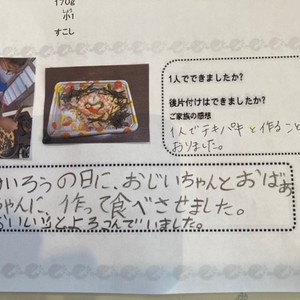 170g
しょう
小1
すこし
1人でできましたか?
後片付けはできましたか?
ご家族の感想
1人でテキパキと作ること
おりました。
けいろうの日に、おじいちゃんとおばあ
ちゃんに、作って食べさせました。
おいしいッとよろこんでいました。